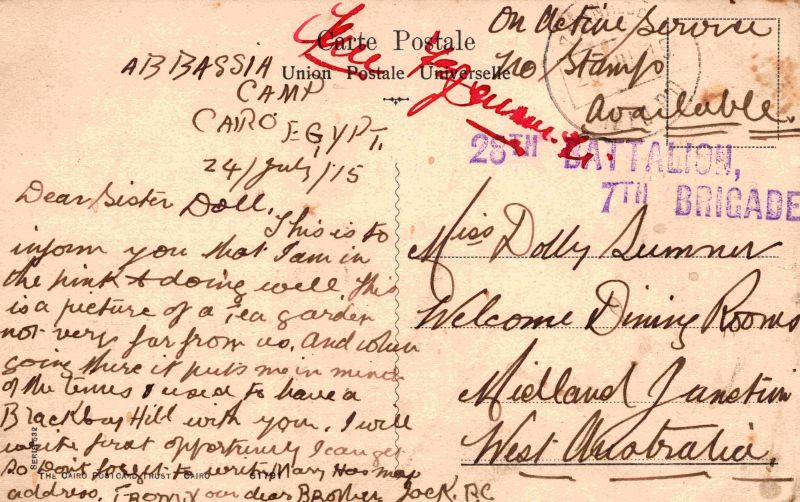 Carte Postale
Union Postale Universelle
On Active Service
No Stamps
Available.
28TH BATTALION,
7TH BRIGADE
ABBASSIA
CAMP
CAIRO EGYPT.
24/July/15
Dear Sister Doll,
This is to
inform you that I am in
the pink & doing well This
is a picture of a Tea garden
not very far from us. And when
going there it puts me in mind
of the times I used to have a
Blackboy Hill with you. I will
write first opportunity I can get
So don't forget to write Mary Has my
address. From Your dear Brother Jack. RC
Miss Dolly Sumner
Welcome Dining Rooms
Midland Junction
West Australia.
SERIE 532
THE CAIRO POSTCARD TRUST, CAIRO